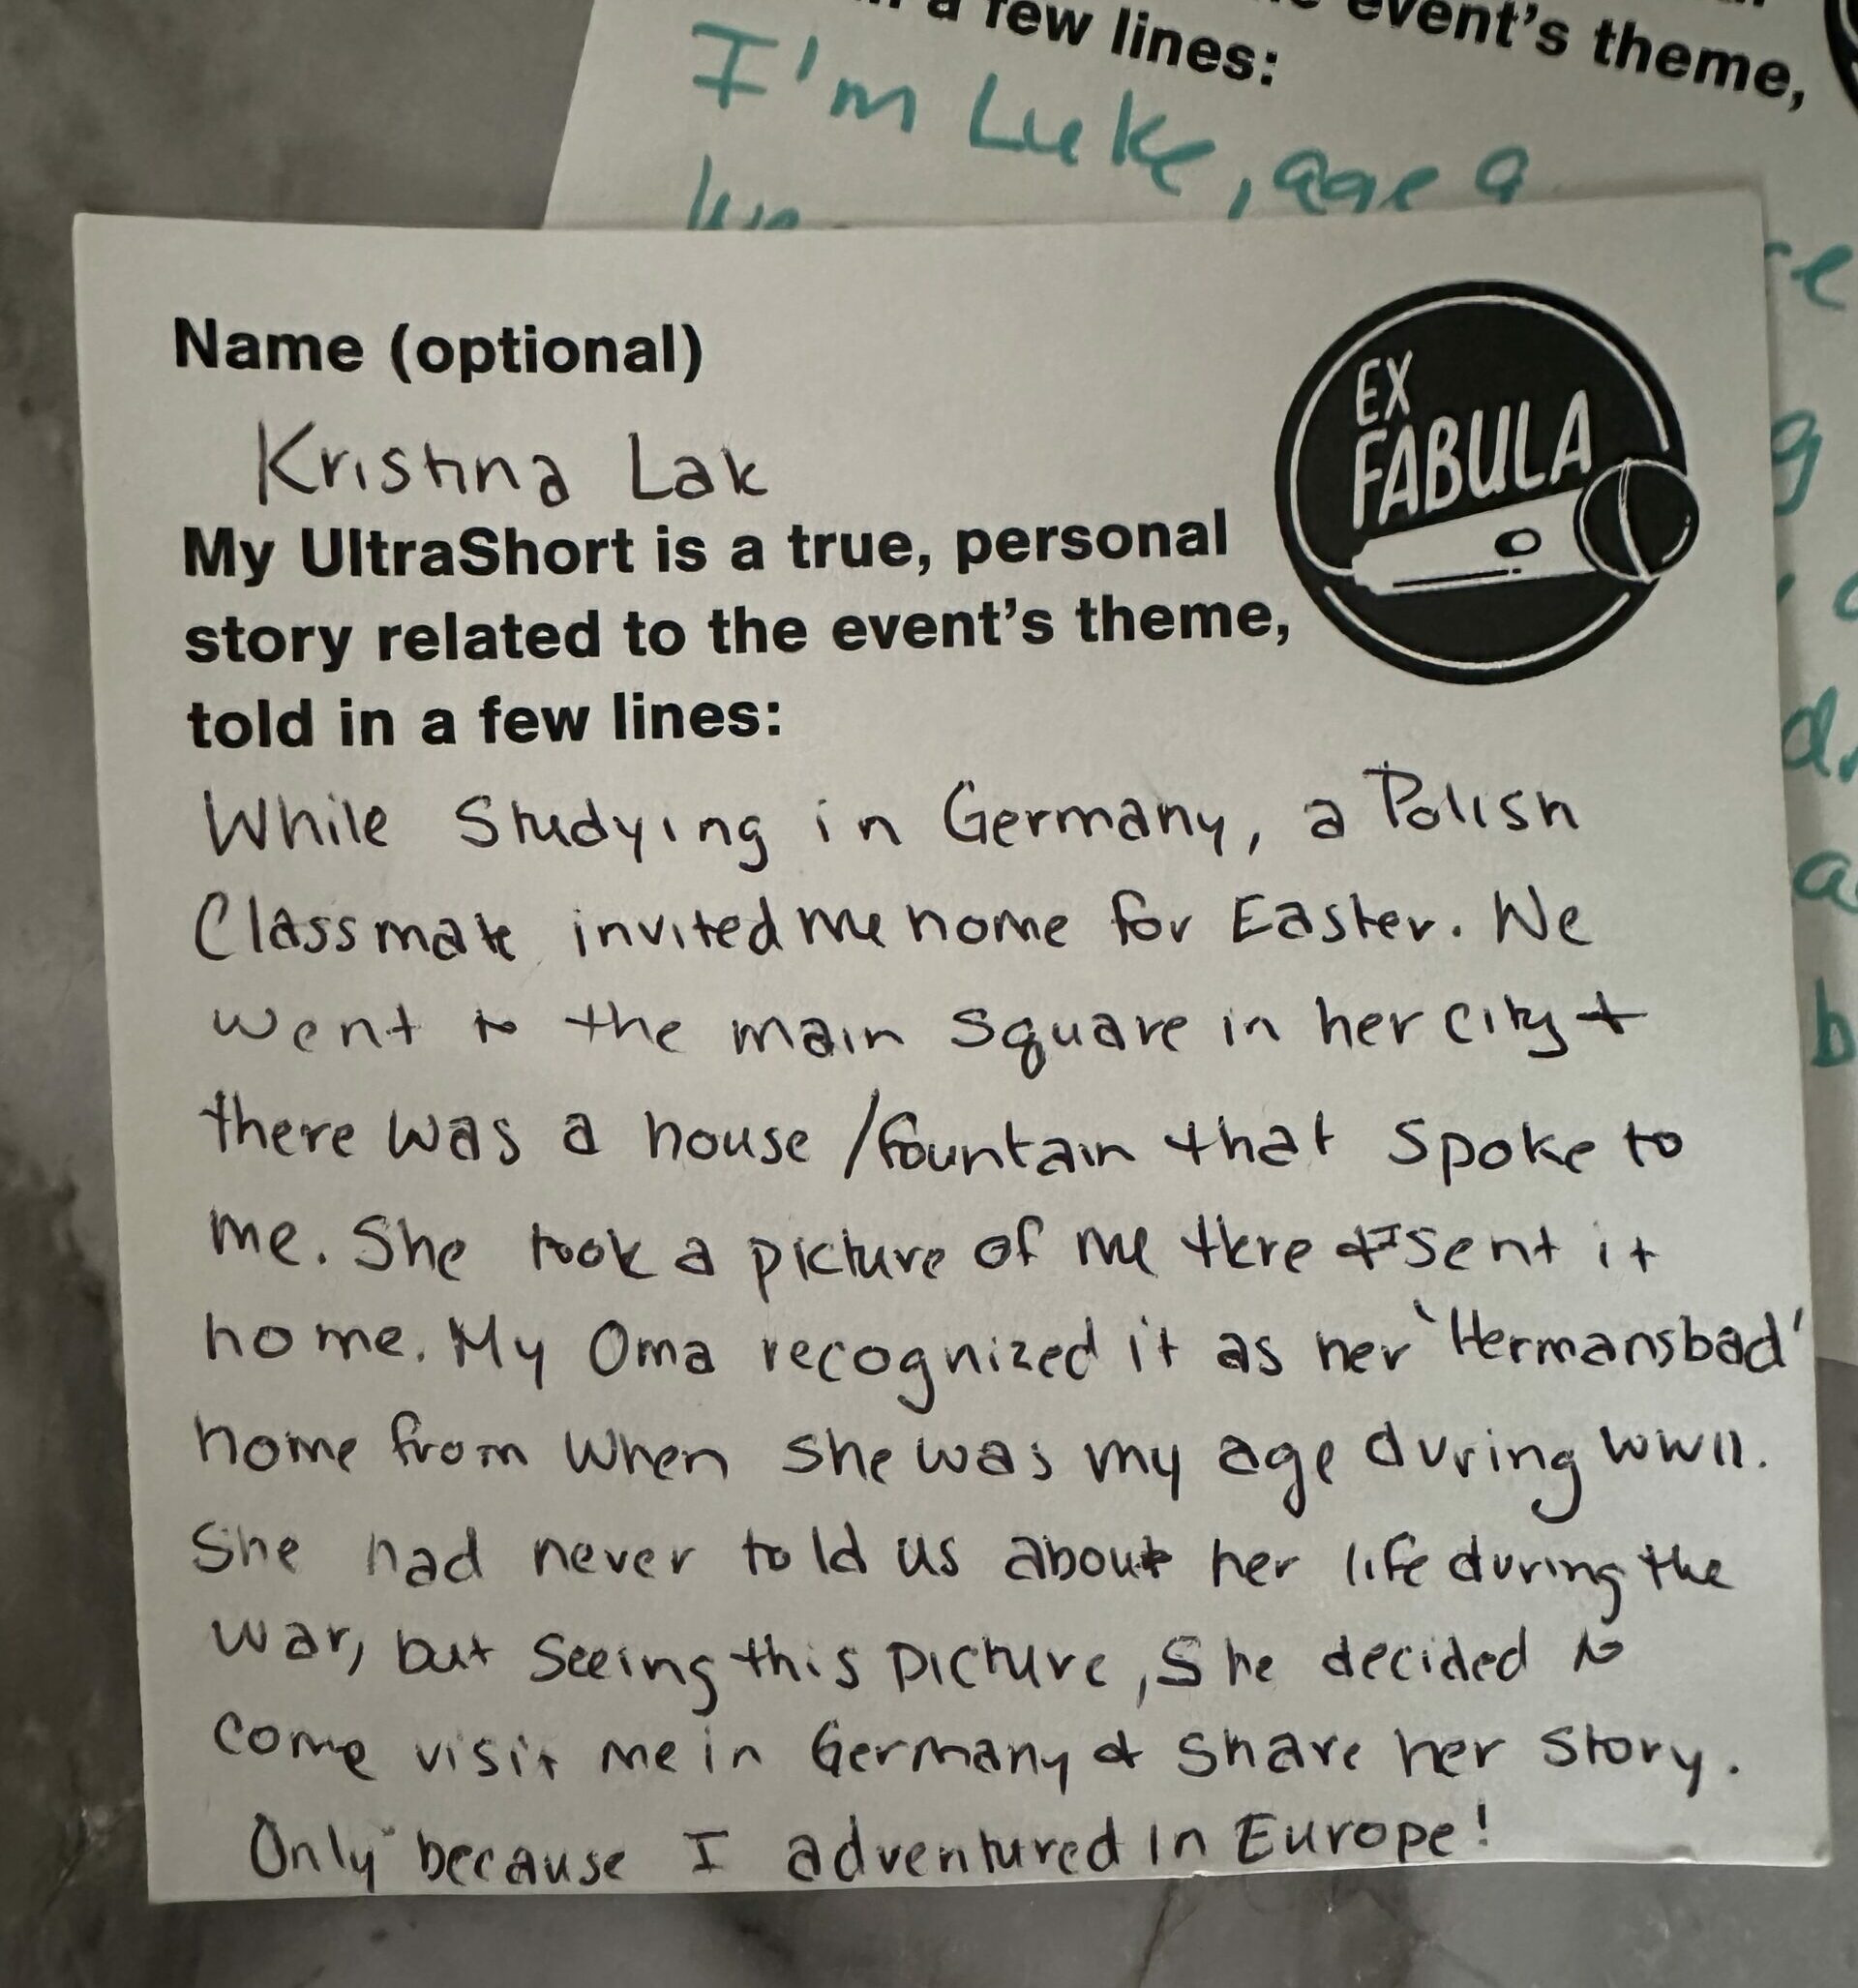 a few lines:
event's theme,
I'm Luke, age 9
Name (optional)
Kristina Lak
EX
FABULA
My UltraShort is a true, personal
story related to the event's theme,
told in a few lines:
While Studying in Germany, a Polish
Classmate invited me home for Easter. We
went to the main square in her city +
there was a house / fountain that spoke to
me. She took a picture of me there & I sent it
home. My Oma recognized it as her 'Hermansbad'
home from when she was my age during WWII.
She had never told us about her life during the
war, but seeing this picture, she decided to
come visit me in Germany & share her story.
Only because I adventured in Europe!